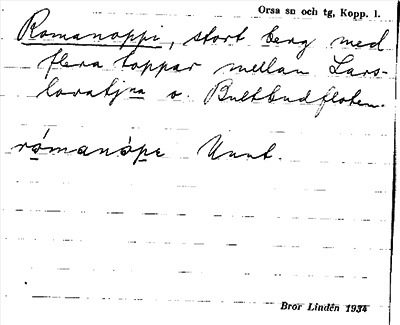 Orsa sn och tg, Kopp. l.
Romanoppi, stort berg med
flera toppar mellan Lars-
loratjna o. Bultbudfloten.
rómanòpe Uuut.
Bror Lindén 1934